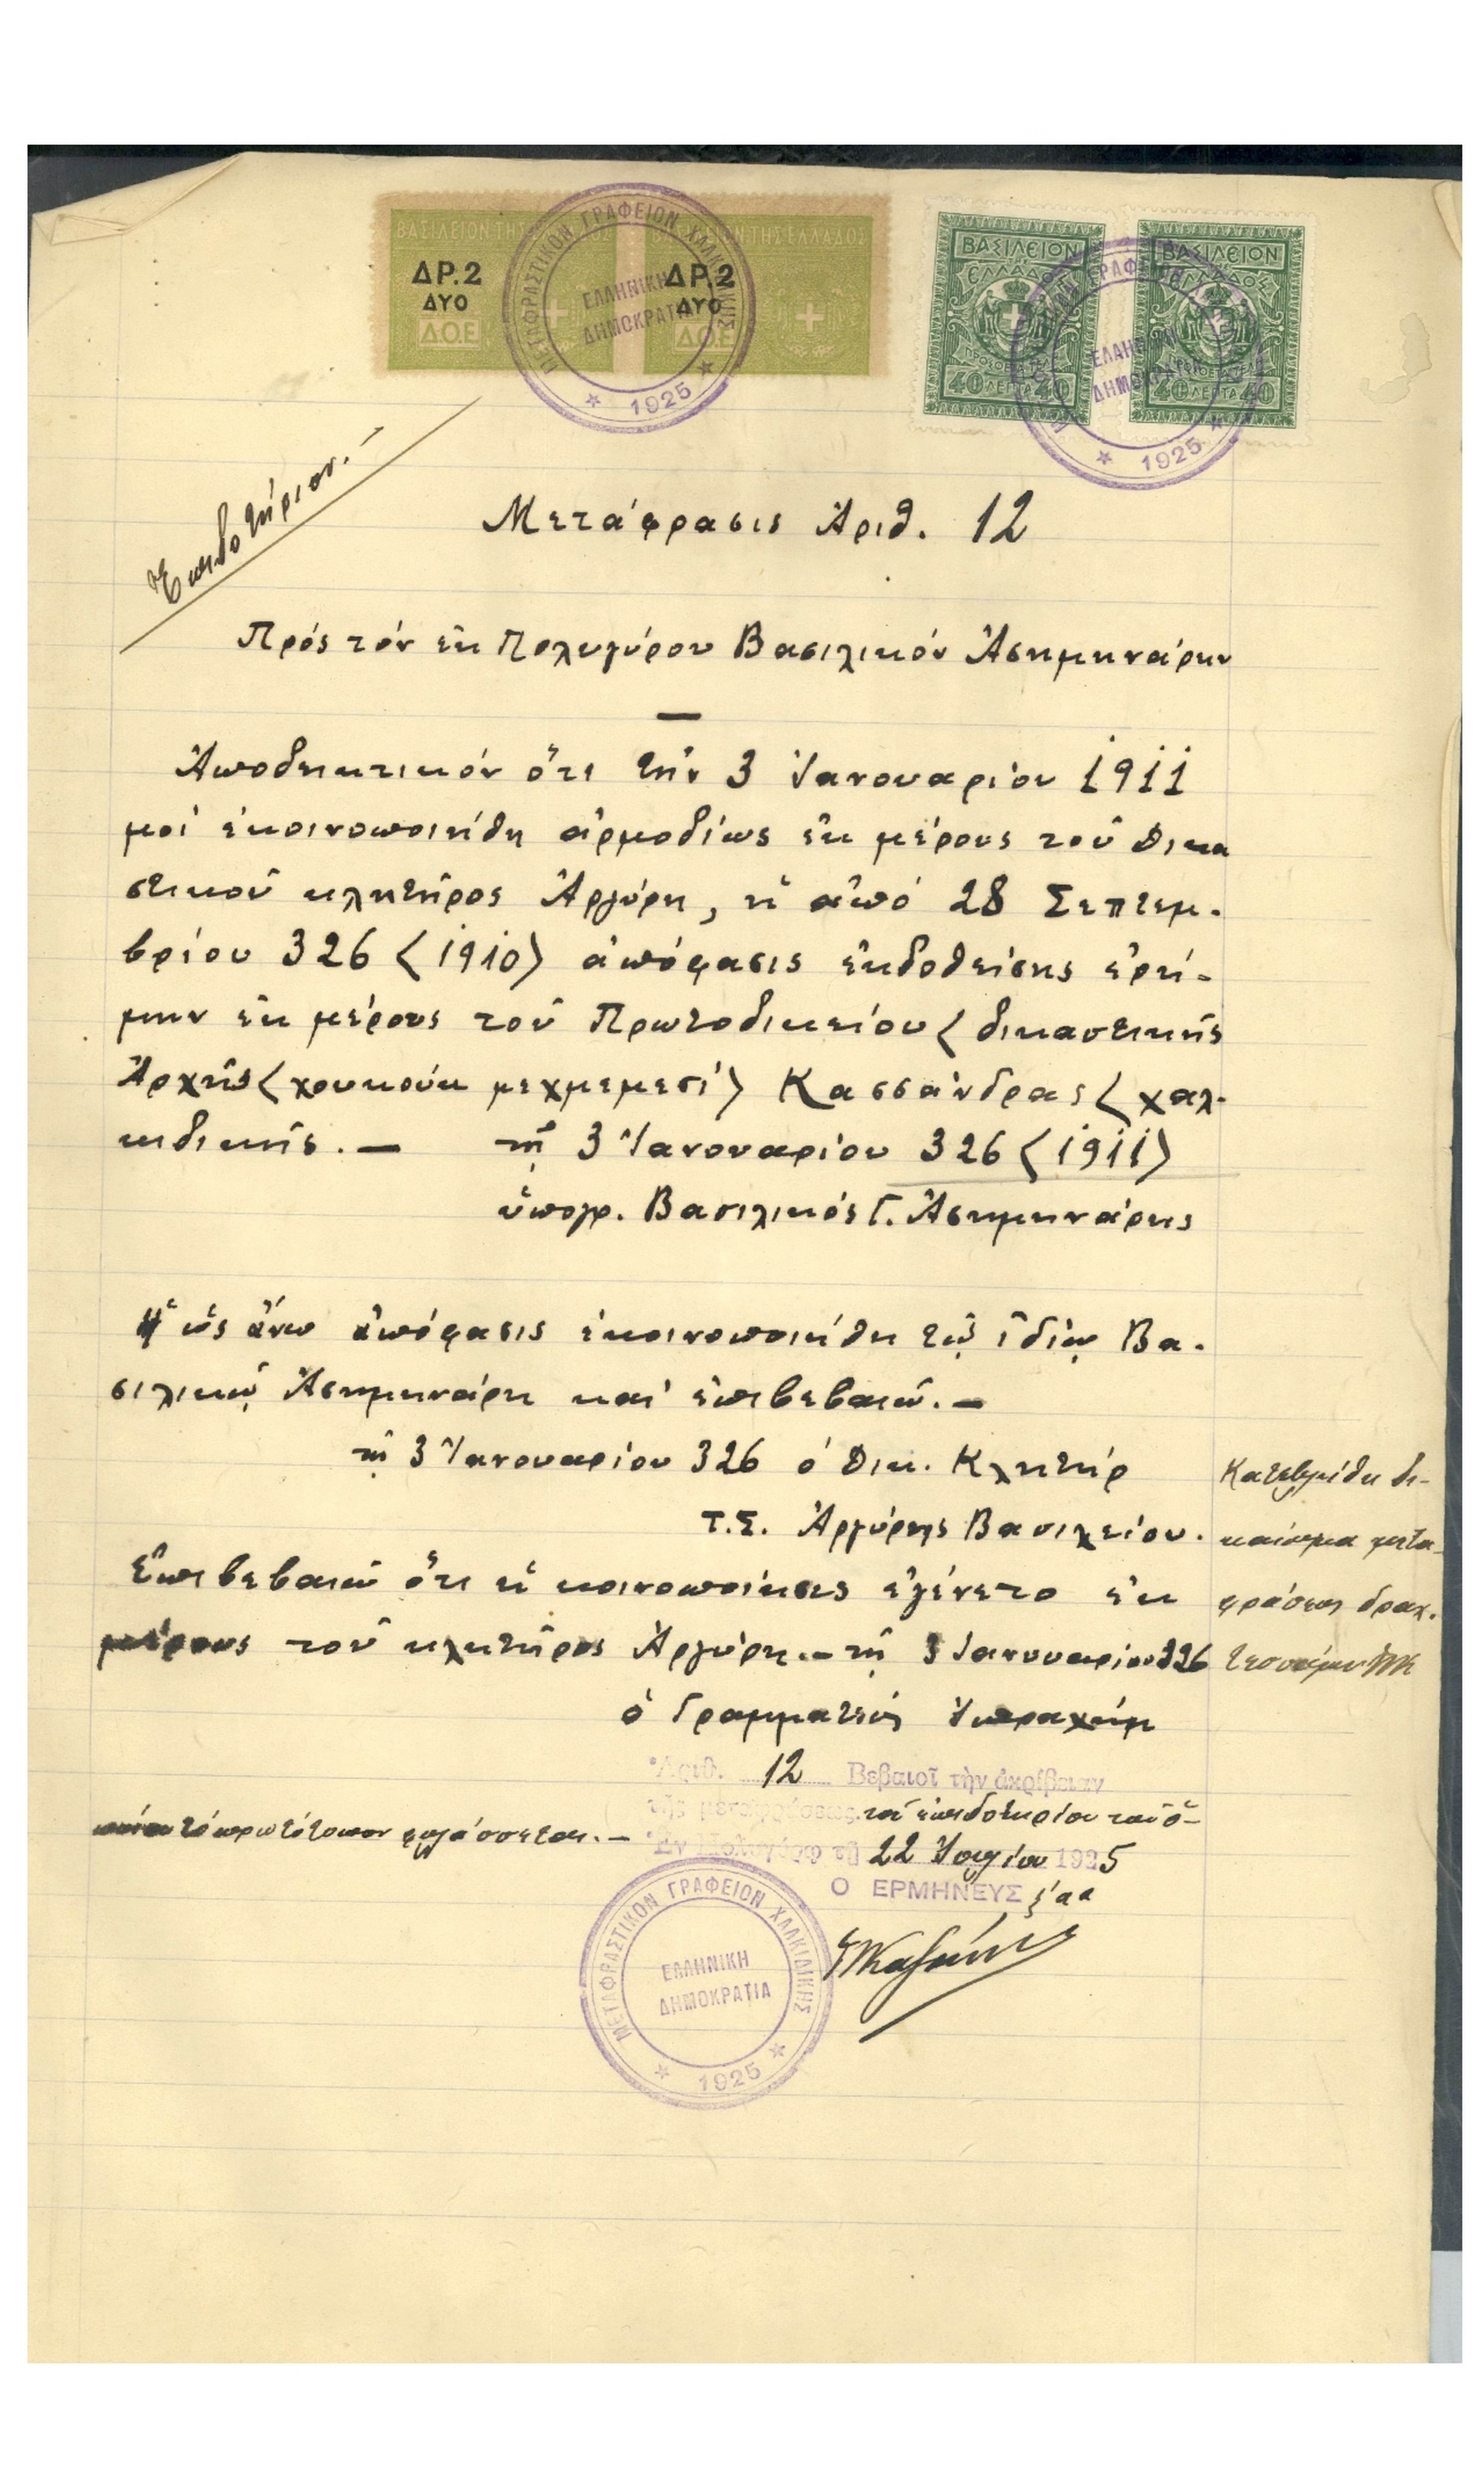 ΒΑΣΙΛΕΙΟΝ ΤΗΣ ΕΛΛΑΔΟΣ
ΔΡ.2
ΔΥΟ
Δ.Ο.Ε
ΔΡ.2
ΔΥΟ
Δ.Ο.Ε
ΜΕΤΑΦΡΑΣΤΙΚΟΝ ΓΡΑΦΕΙΟΝ ΧΑΛΚΙΔΙΚΗΣ
ΕΛΛΗΝΙΚΗ
ΔΗΜΟΚΡΑΤΙΑ
1925
ΒΑΣΙΛΕΙΟΝ
ΕΛΛΑΔΟΣ
40 ΛΕΠΤΑ 40
ΒΑΣΙΛΕΙΟΝ
ΕΛΛΑΔΟΣ
40 ΛΕΠΤΑ 40
ΕΛΛΗΝΙΚΗ
ΔΗΜΟΚΡΑΤΙΑ
1925
Ἐπιδοτήριον.-
Μετάφρασις Ἀριθ. 12
Πρός τόν ἐκ Πολυγύρου Βασιλικόν Ἀσημηνάρην
Ἀποδεικτικόν ὅτι τήν 3 Ἰανουαρίου 1911
μοί ἐκοινοποιήθη ἁρμοδίως ἐκ μέρους τοῦ δικα
στικοῦ κλητῆρος Ἀργύρη, ἡ ἀπό 28 Σεπτεμ-
βρίου 326 (1910) ἀπόφασις ἐκδοθείσης ἐρή-
μην ἐκ μέρους τοῦ Πρωτοδικείου (δικαστικῆς
Ἀρχῆς (χουκούκ μεχμεμεσί) Κασσάνδρας (Χαλ-
κιδικῆς.- τῇ 3 Ἰανουαρίου 326 (1911)
ὑπογρ. Βασιλικός Γ. Ἀσημηνάρης
Ἡ ὡς ἄνω ἀπόφασις ἐκοινοποιήθη τῷ ἰδίῳ Βα-
σιλικῷ Ἀσημηνάρῃ καί ἐπιβεβαιῶ.-
τῇ 3 Ἰανουαρίου 326 ὁ Δικ. Κλητήρ
Τ.Σ. Ἀργύρης Βασιλείου.
Ἐπιβεβαιῶ ὅτι ἡ κοινοποίησις ἐγένετο ἐκ
μέρους τοῦ κλητῆρος Ἀργύρη.- τῇ 3 Ἰανουαρίου 326
ὁ Γραμματεύς Ἰμπραχήμ
Κατεβλήθη δι-
καίωμα μετα-
φράσεως δραχ.
Ἀριθ. 12 Βεβαιοῖ τὴν ἀκρίβειαν
τῆς μεταφράσεως τοῦ ἐπιδοτηρίου τοῦ ὁ-
ποίου τό πρωτότυπον φυλάσσεται.-
Ἐν Πολυγύρῳ τῇ 22 Ἰουλίου 1925
Ο ΕΡΜΗΝΕΥΣ
ΜΕΤΑΦΡΑΣΤΙΚΟΝ ΓΡΑΦΕΙΟΝ ΧΑΛΚΙΔΙΚΗΣ
ΕΛΛΗΝΙΚΗ
ΔΗΜΟΚΡΑΤΙΑ
1925